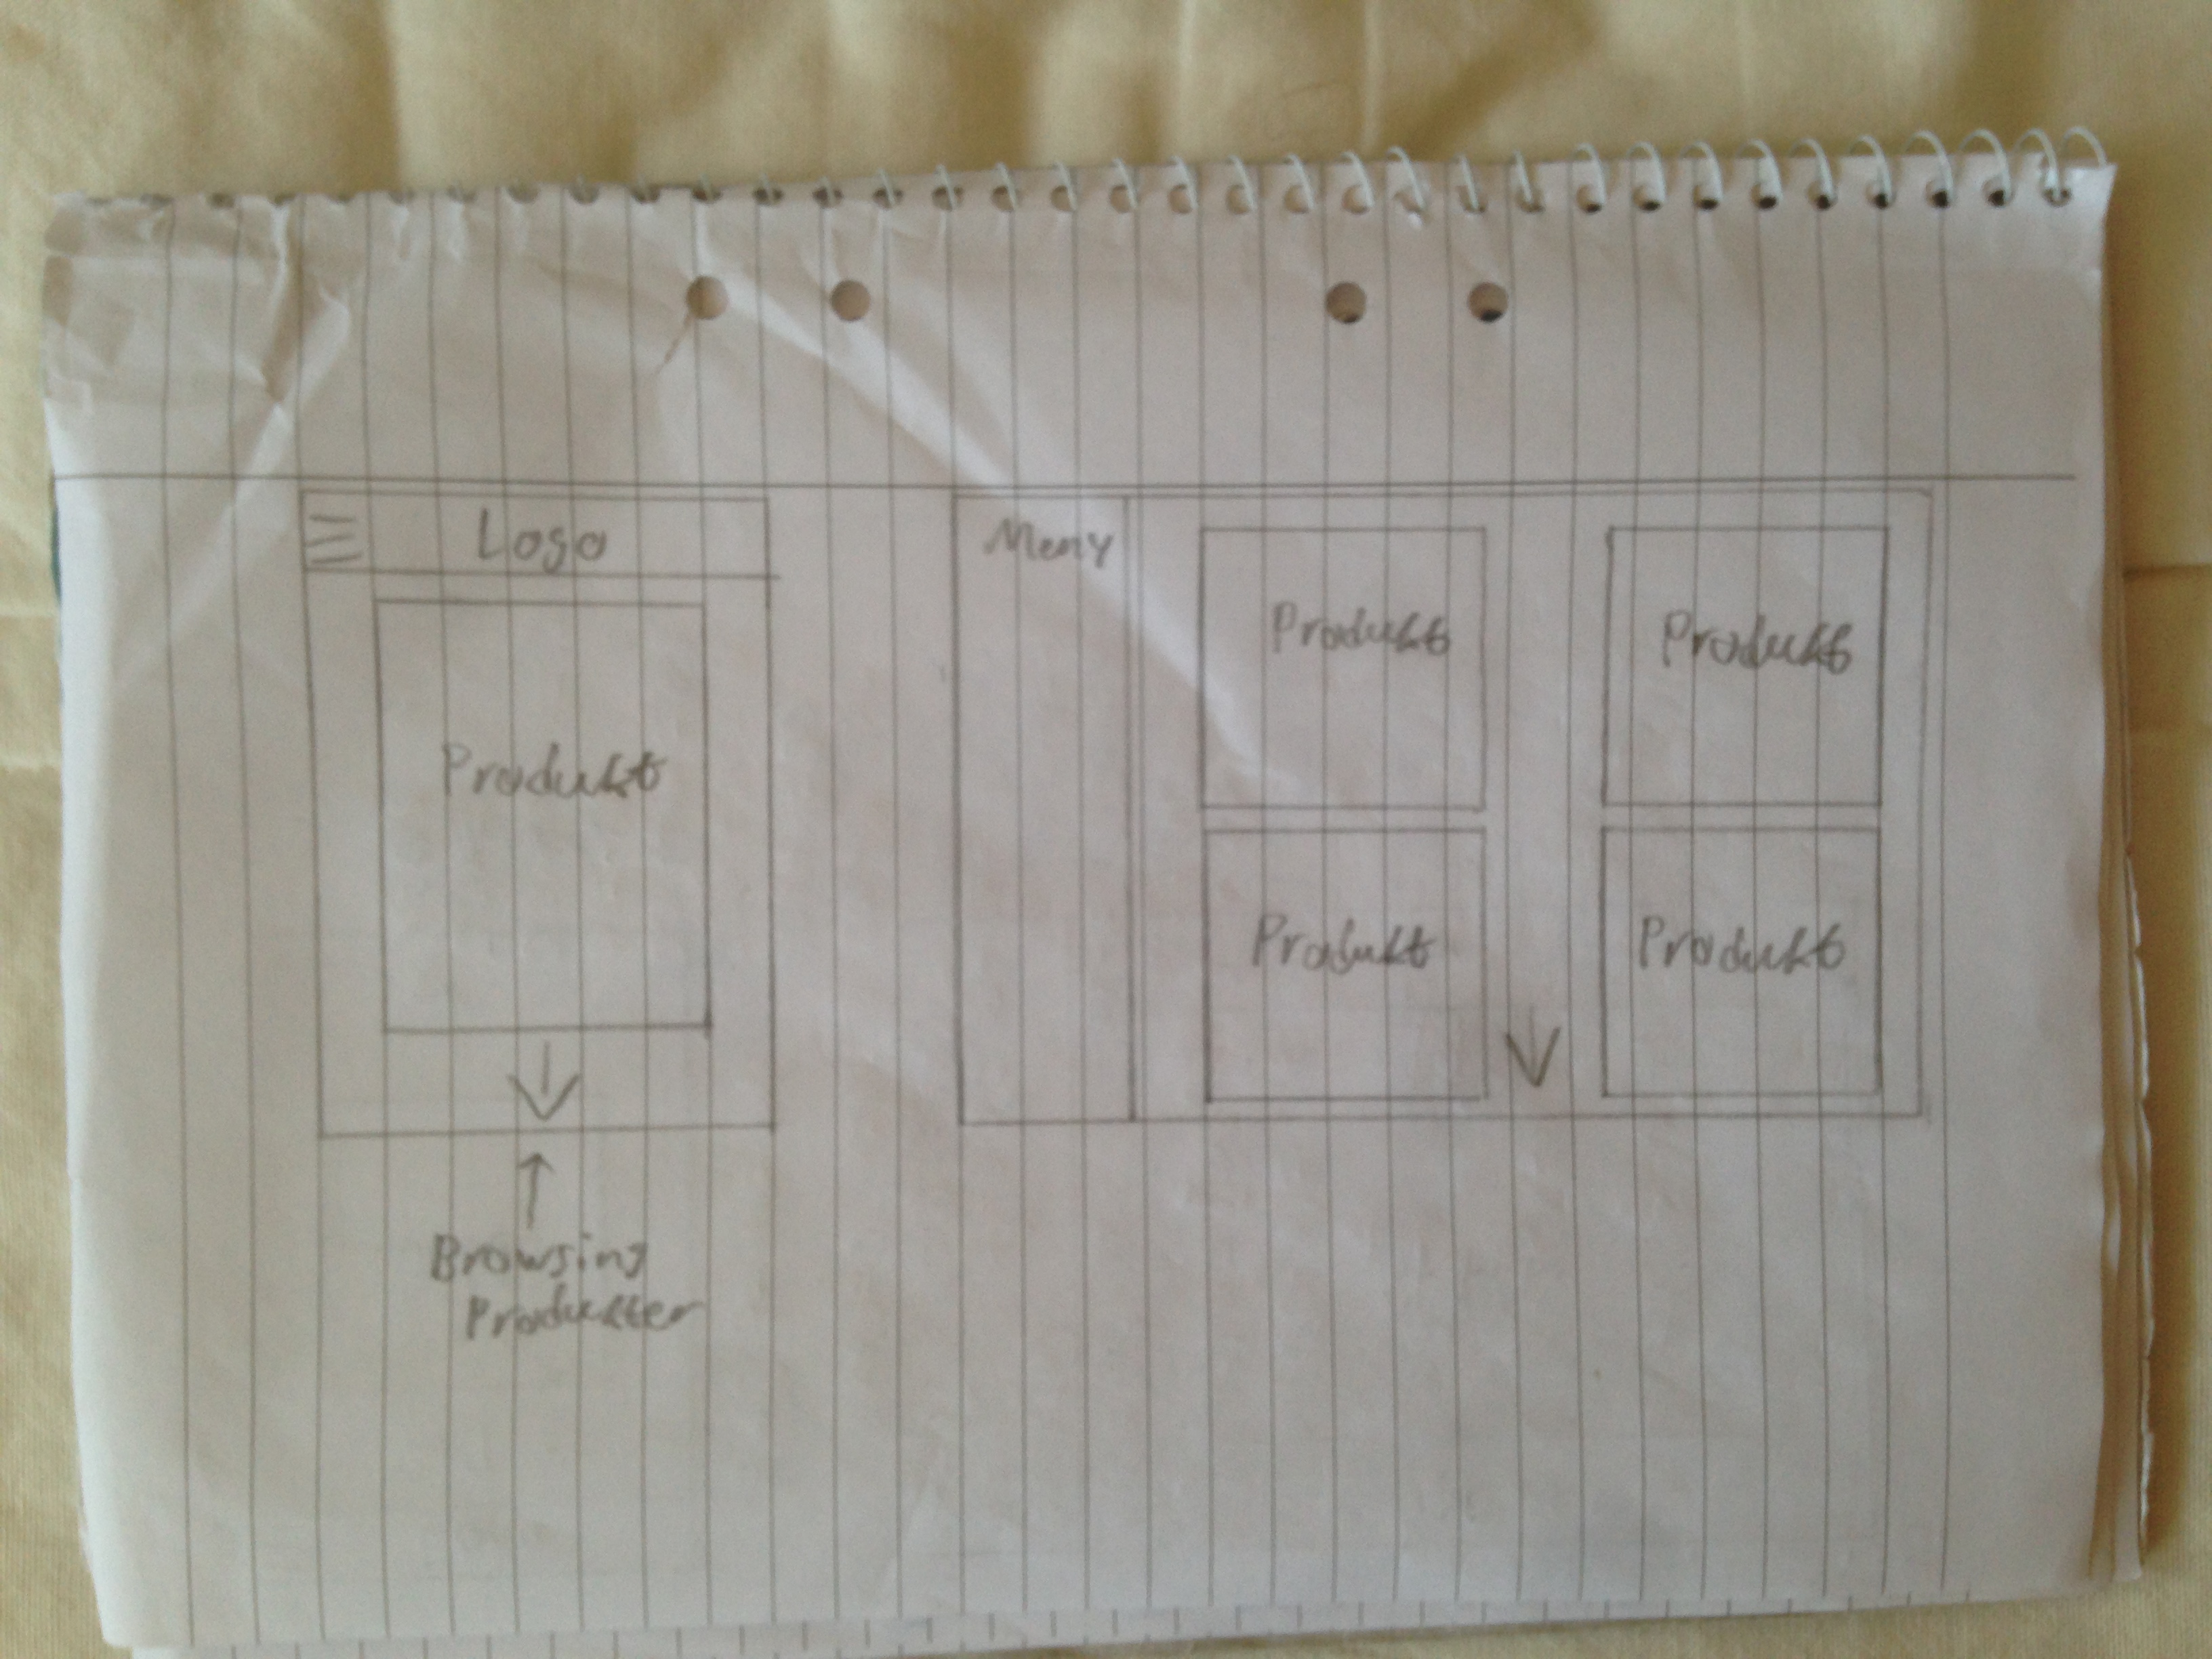 Logo
Produkt
Browsing
Produkter
Meny
Produkt
Produkt
Produkt
Produkt